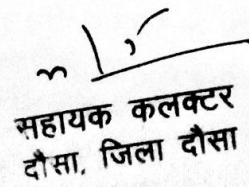 सहायक कलक्टर
दौसा, जिला दौसा